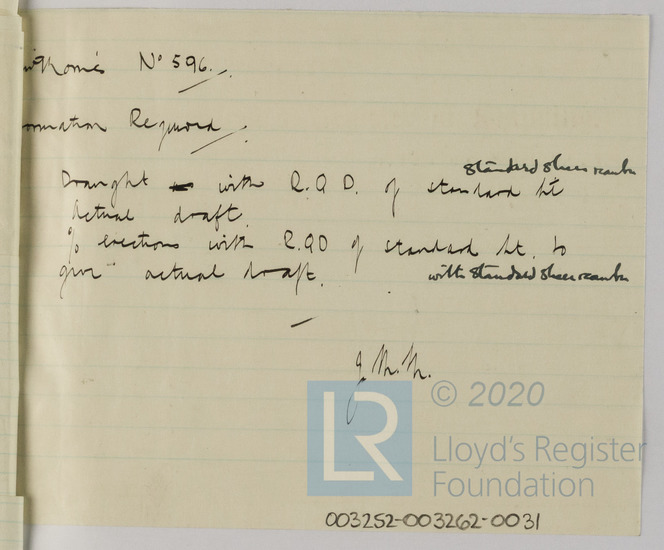 thorne's No 596.
ormation Required
standard sheer & camber
Draught with R.Q D. of standard ht
Actual draft.
% erections with R.QD of standard ht. to
give actual draft.
with standard sheer & camber
J. M. M.
© 2020
LR
Lloyd's Register
Foundation
003252-003262-0031